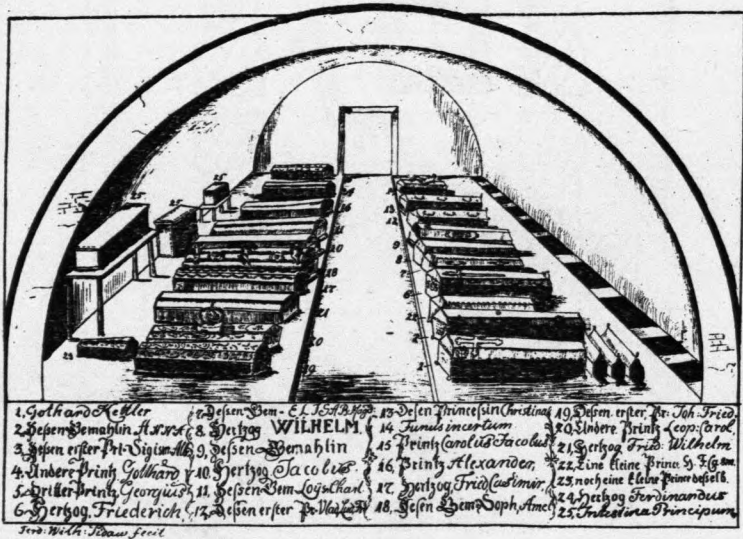 1. Gothard Kettler
2. Dessen Gemahlin ANNA
3. Dessen erster Prt. Sigism. Alb
4. Andere Printz Gotthard
5. Dritter Printz Georgius
6. Hertzog Friederich
7. Dessen Gem. ELISAB. Magd
8. Hertzog WILHELM.
9. Dessen Gemahlin
10. Hertzog Jacobus
11. Dessen Gem. Loys. Charl
12. Dessen erster Pr.
13. Desen Princessin Christina
14 Funus incertum
15 Printz Carolus Jacobus
16. Printz Alexander,
17. Hertzog Fried Casimir,
18. Desen Gem. Soph. Amel
19. Desem. erster. Pr. Joh. Fried.
20. Andere Printz Leop. Carol.
21. Hertzog Fried. Wilhelm
22. Eine kleine Princ. H. F. C.
23. noch eine kleine Princ desselb.
24. Hertzog Ferdinandus
25. Intestina Principum
Ferd. Wilh. fecit
25
25
25
14
16
11
10
18
17
21
20
19
23
13
12
9
8
7
6
2
1